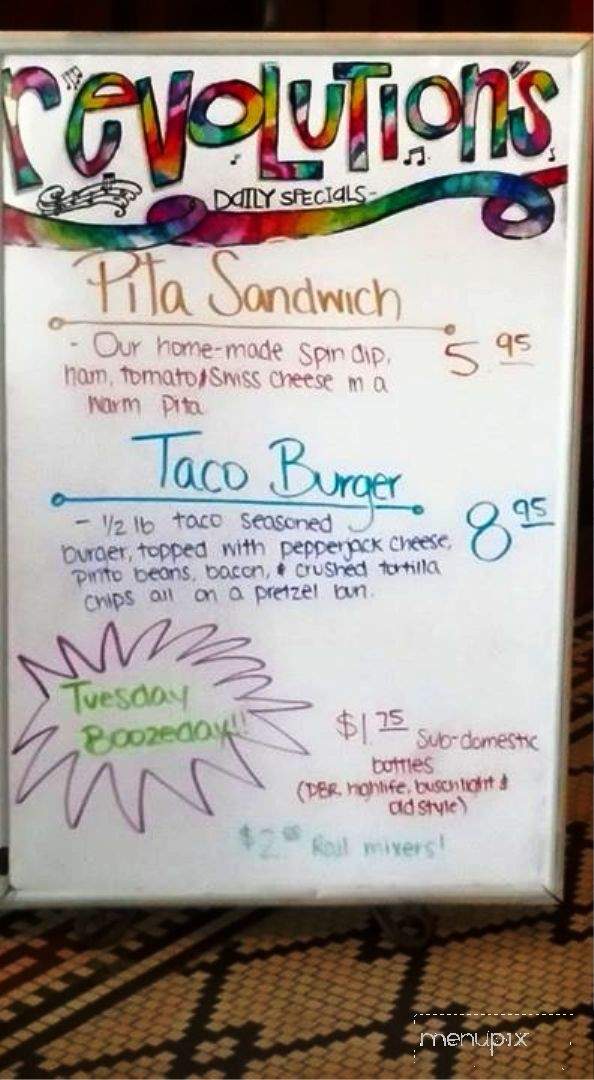 revolutions
DAILY SPECIALS-
Pita Sandwich
- Our home-made spin dip,
ham, tomato, Swiss cheese in a
warm pita
5.95
Taco Burger
- 1/2 lb taco seasoned
burger, topped with pepperjack cheese,
pinto beans, bacon, & crushed tortilla
chips all on a pretzel bun.
8 95
Tuesday
Boozeday!!
$1.75 Sub-domestic
bottles
(PBR, highlife, busch light &
old style)
$2.00 Rail mixers!
menupix